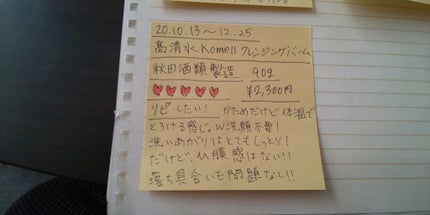 20.10.13～12.25
高清水Komell クレンジングバーム
秋田酒類製造 90g
♥♥♥♥♥ ¥2,300円
リピしたい! かためだけど体温で
とろける感じ。W洗顔不要!
洗いあがりはとてもしっとり!
だけど、仏膜感はない!!
落ち具合いも問題なし!!